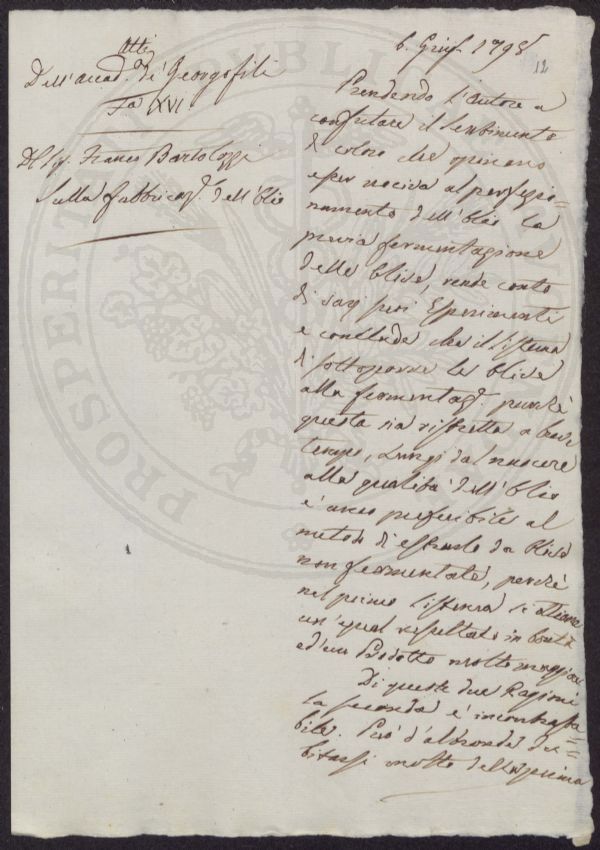 Atti
Dell'accad. de' Georgofili
XVI
Del Sig. Franco Bartolozzi
Sulla fabbricaz. dell'Olio
6. Giug. 1798
12
Prendendo l'Autore a
confutare il sentimento
di coloro che opinano
esser nociva al perfezio=
namento dell'Olio la
previa fermentazione
delle Olive, rende conto
di varj suoi Esperimenti
e conclude che il sistema
di sottoporre le Olive
alla fermentaz. purchè
questa sia ristretta a breve
tempo, lungi dal nuocere
alla qualità dell'Olio
è anco preferibile al
metodo di estrarlo da Olive
non fermentate, perchè
nel primo sistema si ottiene
un'egual risultato in bontà
ed un Prodotto molto maggiore
Di queste due Ragioni
la seconda è incontrasta=
bile. Può d'altronde du=
bitarsi molto della prima
PROSPERITATI PUBLICAE